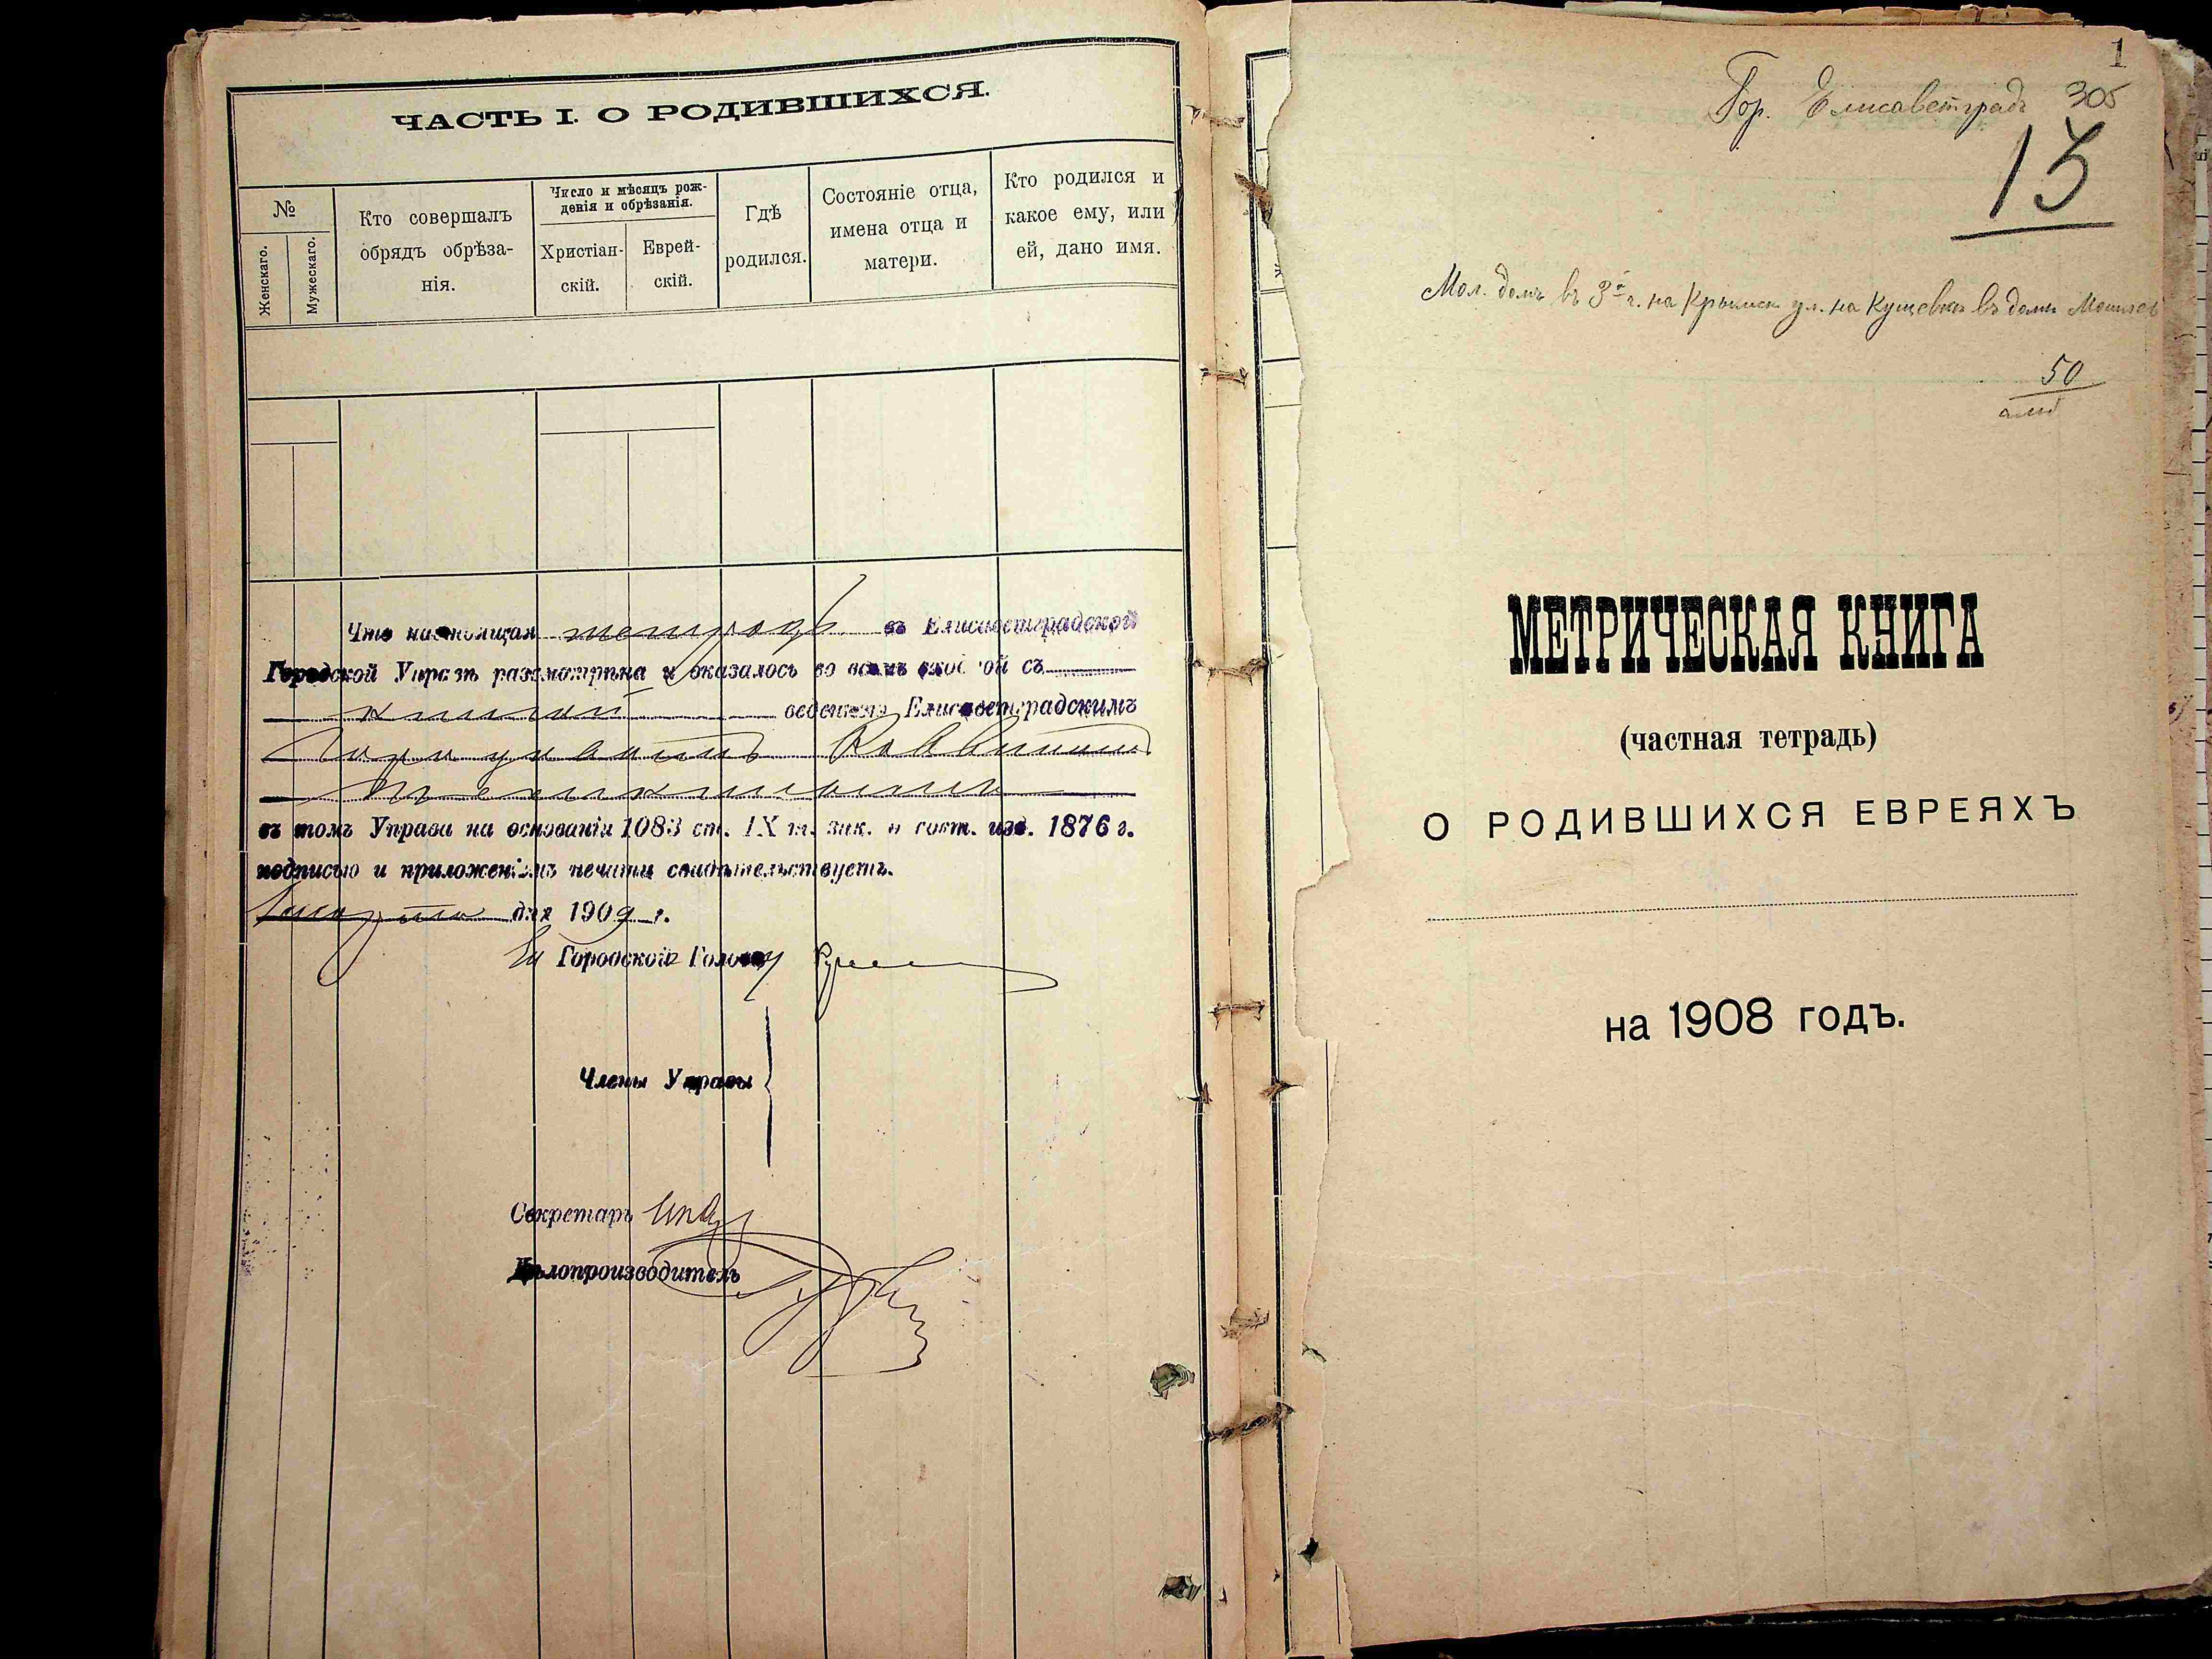 ЧАСТЬ I. О РОДИВШИХСЯ.
№
Женскаго.
Мужескаго.
Кто совершалъ
обрядъ обрѣза-
нія.
Число и мѣсяцъ рож-
денія и обрѣзанія.
Христіан-
скій.
Еврей-
скій.
Гдѣ
родился.
Состояніе отца,
имена отца и
матери.
Кто родился и
какое ему, или
ей, дано имя.
Что настоящая тетрадь въ Елисаветградской
Городской Управѣ разсмотрѣна и оказалось во всемъ сходной съ
книгой веденной Елисаветградскимъ
Раввиномъ
въ томъ Управа на основаніи 1083 ст. IX т. зак. о сост. изд. 1876 г.
подписью и приложеніемъ печати свидѣтельствуетъ.
дня 1909 г.
Городской Голова
Члены Управы
Секретарь
Дѣлопроизводитель
1
Гор. Елисаветградъ 305
13
Мол. домъ въ 3й ч. на Крымск ул. на Кущевкѣ въ домѣ
50
МЕТРИЧЕСКАЯ КНИГА
(частная тетрадь)
О РОДИВШИХСЯ ЕВРЕЯХЪ
на 1908 годъ.